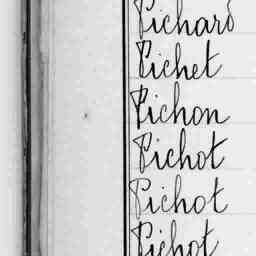 Pichard
Pichet
Pichon
Pichot
Pichot
Pichot